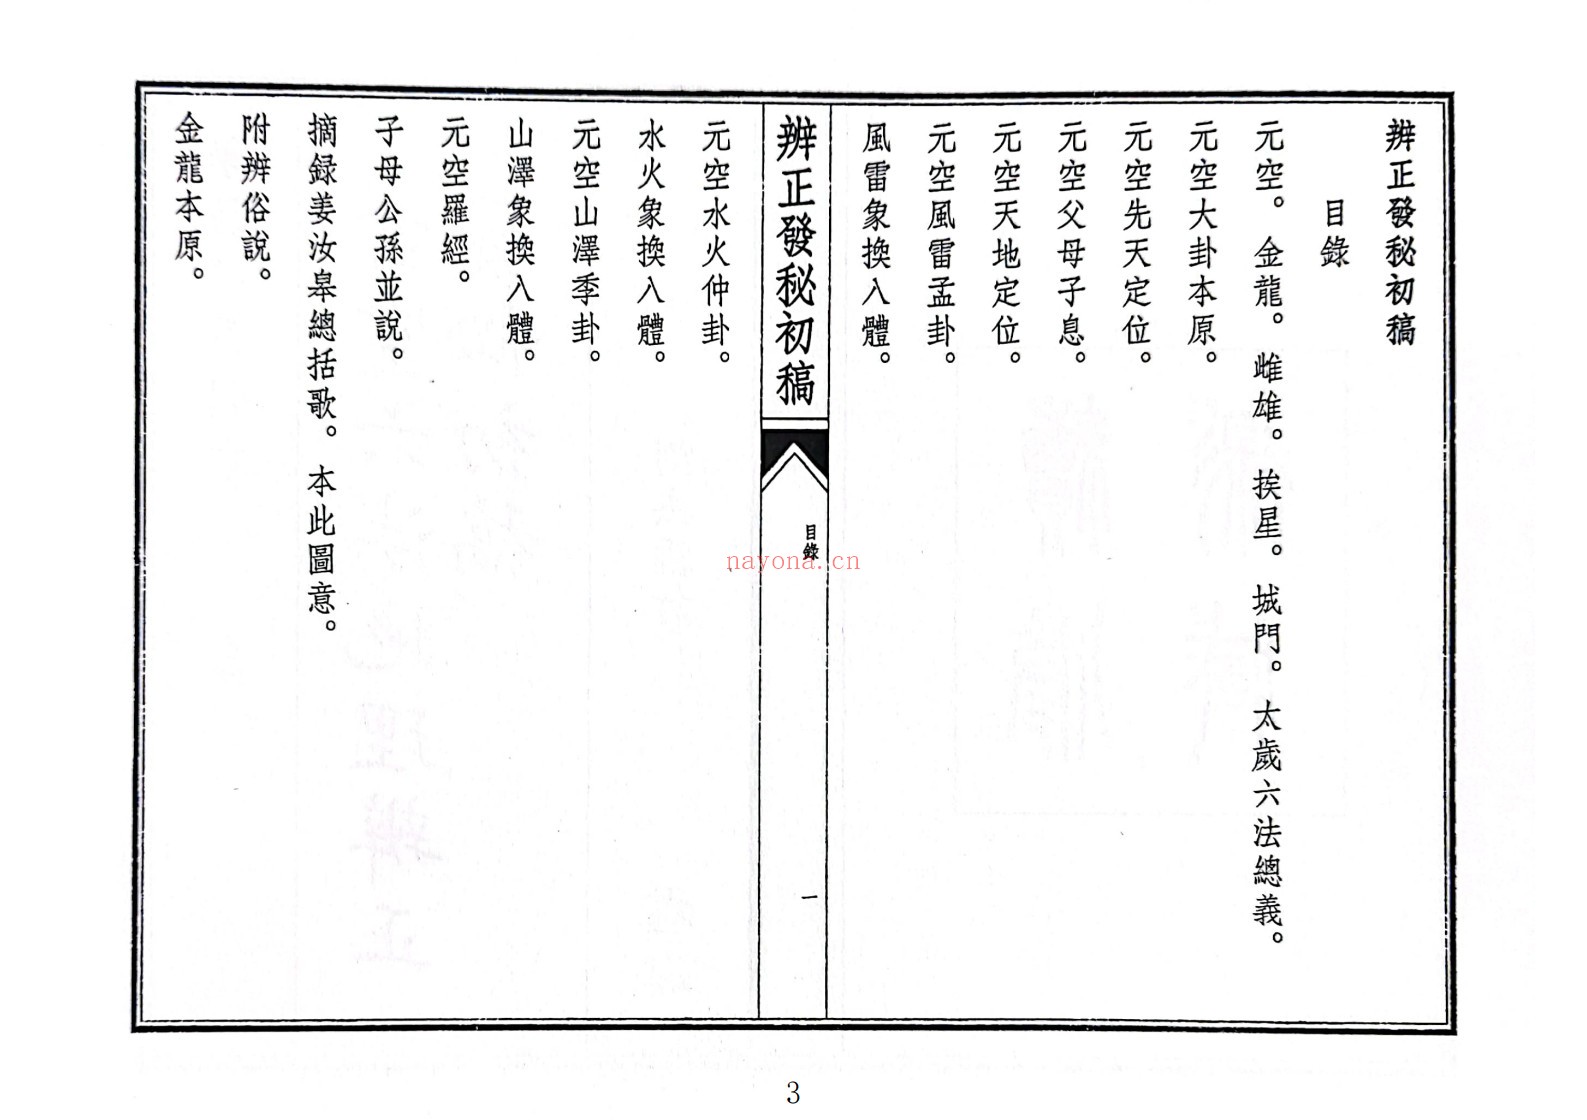 辨正發秘初稿
目錄
元空。金龍。雌雄。挨星。城門。太歲六法總義。
元空大卦本原。
元空先天定位。
元空父母子息。
元空天地定位。
元空風雷孟卦。
風雷象換入體。
辨正發秘初稿
目錄
一
元空水火仲卦。
水火象換入體。
元空山澤季卦。
山澤象換入體。
元空羅經。
子母公孫並說。
摘録姜汝皋總括歌。本此圖意。
附辨俗說。
金龍本原。
nayona.cn
3